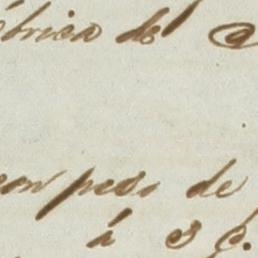 ábrica de
con peso de
á 3 6.